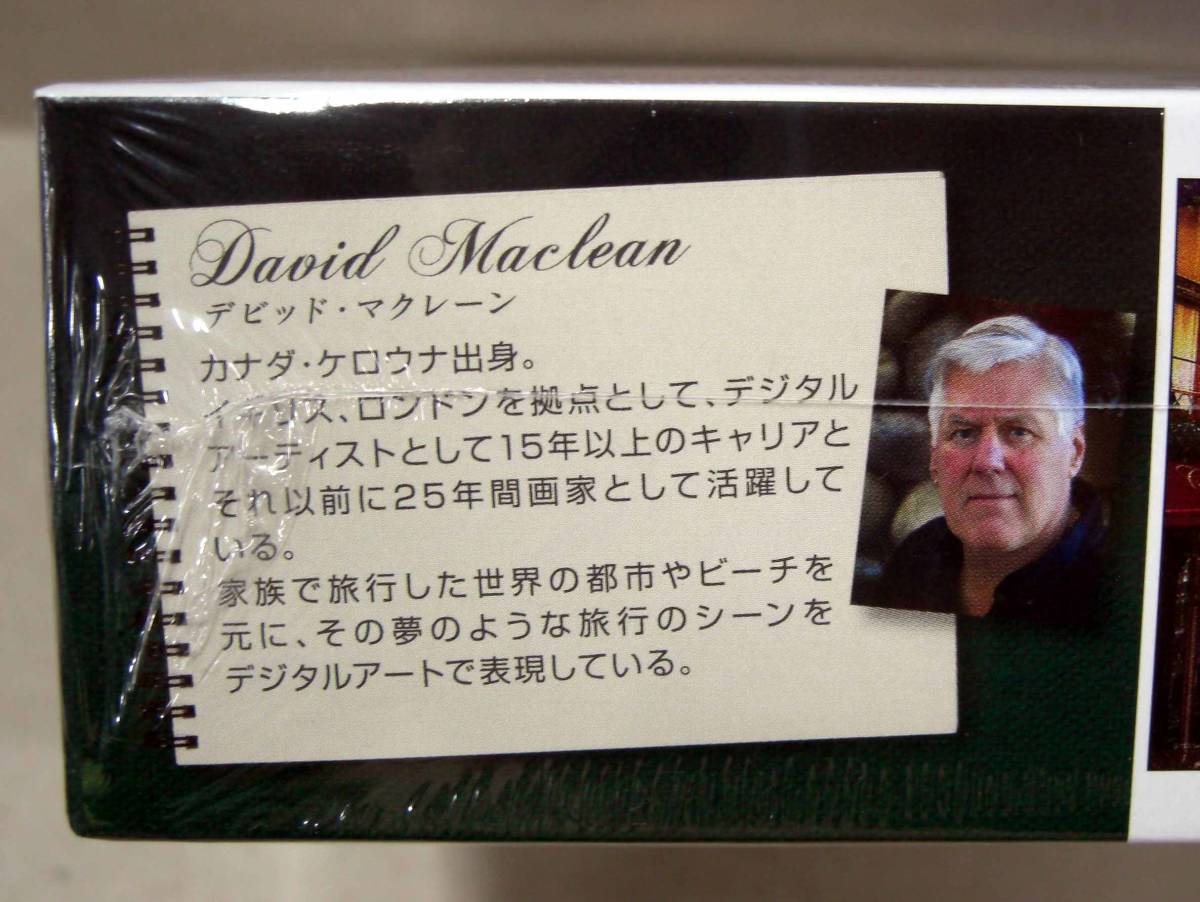 David Maclean
デビッド・マクレーン
カナダ・ケロウナ出身。
イギリス、ロンドンを拠点として、デジタル
アーティストとして15年以上のキャリアと
それ以前に25年間画家として活躍して
いる。
家族で旅行した世界の都市やビーチを
元に、その夢のような旅行のシーンを
デジタルアートで表現している。